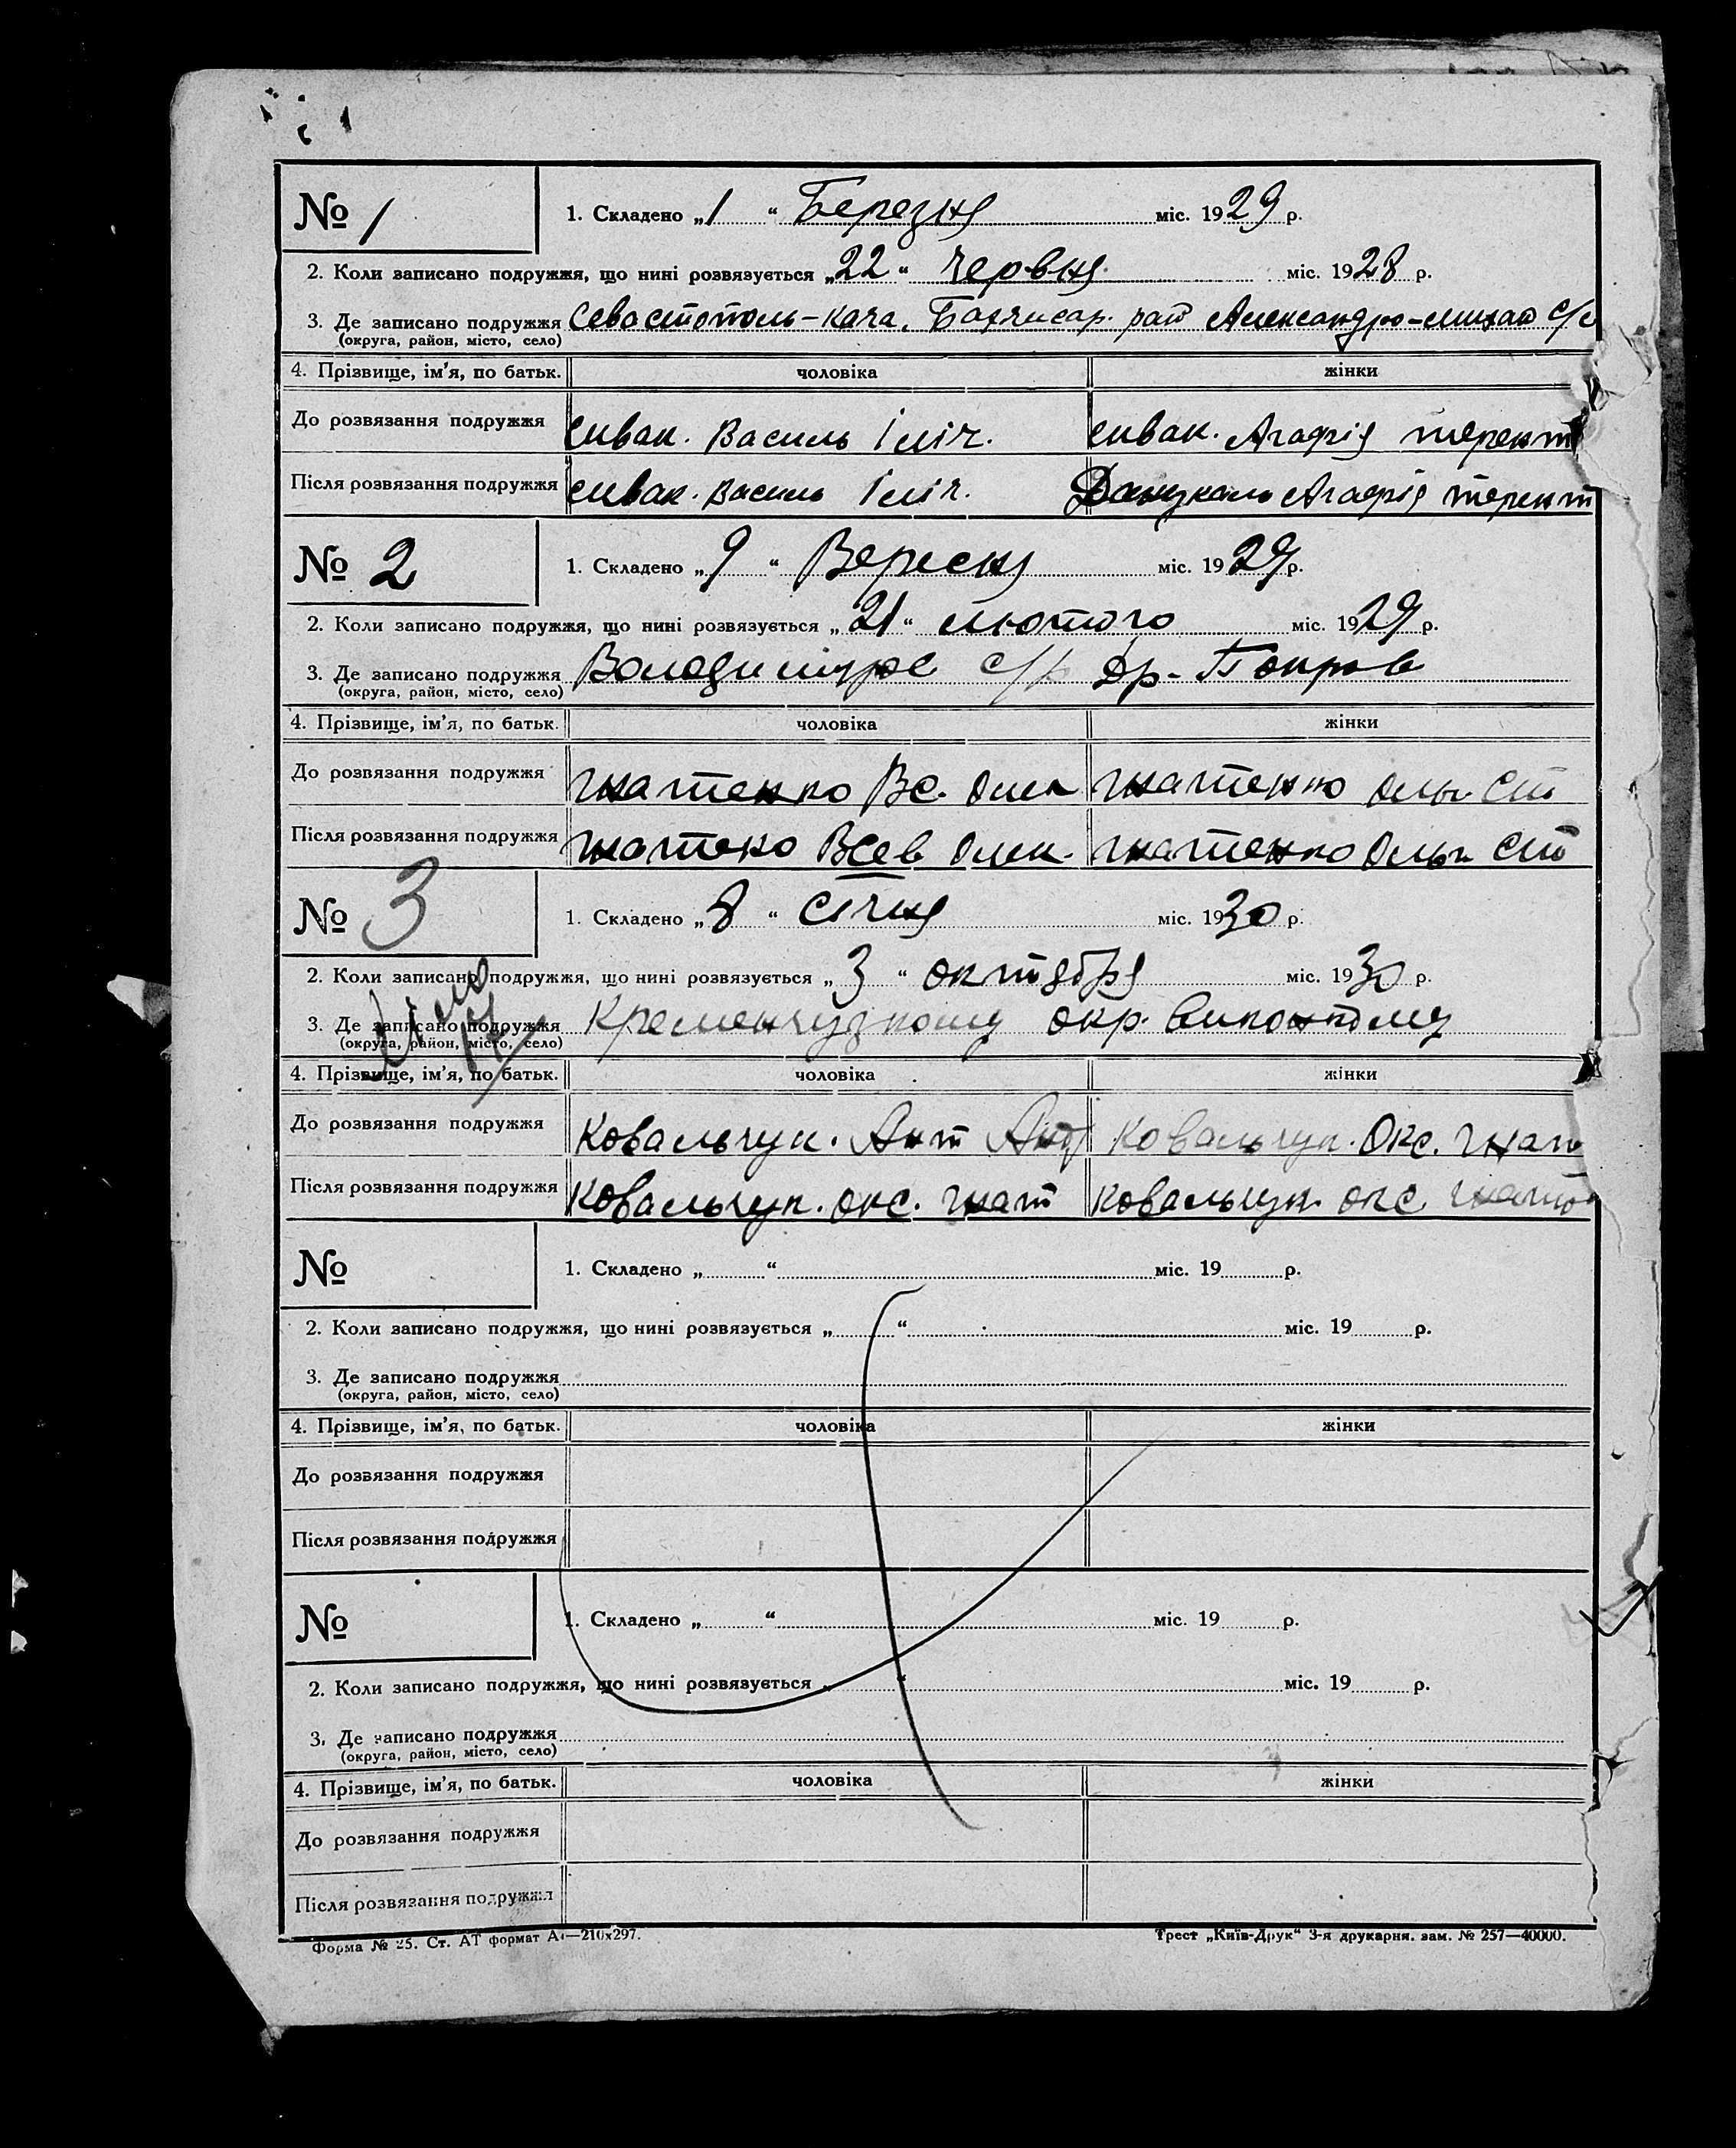 № 1
1. Складено „1“ Березня міс. 1929 р.
2. Коли записано подружжя, що нині розвязується „22“ червня міс. 1928 р.
3. Де записано подружжя Севастополь-Кача, Бахчисар. рай Александро-Михай с/с
(округа, район, місто, село)
4. Прізвище, ім'я, по батьк. чоловіка жінки
До розвязання подружжя Сивак. Василь Іліч. Сивак. Агафія Терент
Після розвязання подружжя Сивак. Василь Іліч. Агафія Терент
№ 2
1. Складено „9“ Вересня міс. 1929 р.
2. Коли записано подружжя, що нині розвязується „21“ лютого міс. 1929 р.
3. Де записано подружжя с/р Др-Покров
(округа, район, місто, село)
4. Прізвище, ім'я, по батьк. чоловіка жінки
До розвязання подружжя Гнатенко Вс. Олек Гнатенко Ольг. Ст
Після розвязання подружжя Гнатеко Всев Олек. Гнатенко Ольг Ст
№ 3
1. Складено „8“ Січня міс. 1930 р.
2. Коли записано подружжя, що нині розвязується „3“ октября міс. 1930 р.
3. Де записано подружжя окр.
(округа, район, місто, село)
4. Прізвище, ім'я, по батьк. чоловіка жінки
До розвязання подружжя Ковальчук. Ант Анд Ковальчук. Окс. Гнат
Після розвязання подружжя Ковальчук. Окс. Гнат Ковальчук. Окс Гнат
№
1. Складено „ “ міс. 19 р.
2. Коли записано подружжя, що нині розвязується „ “ міс. 19 р.
3. Де записано подружжя
(округа, район, місто, село)
4. Прізвище, ім'я, по батьк. чоловіка жінки
До розвязання подружжя
Після розвязання подружжя
№
1. Складено „ “ міс. 19 р.
2. Коли записано подружжя, що нині розвязується „ “ міс. 19 р.
3. Де записано подружжя
(округа, район, місто, село)
4. Прізвище, ім'я, по батьк. чоловіка жінки
До розвязання подружжя
Після розвязання подружжя
Форма № 25. Ст. АТ формат А4—210x297. Трест „Київ-Друк“ 3-я друкарня. зам. № 257—40000.